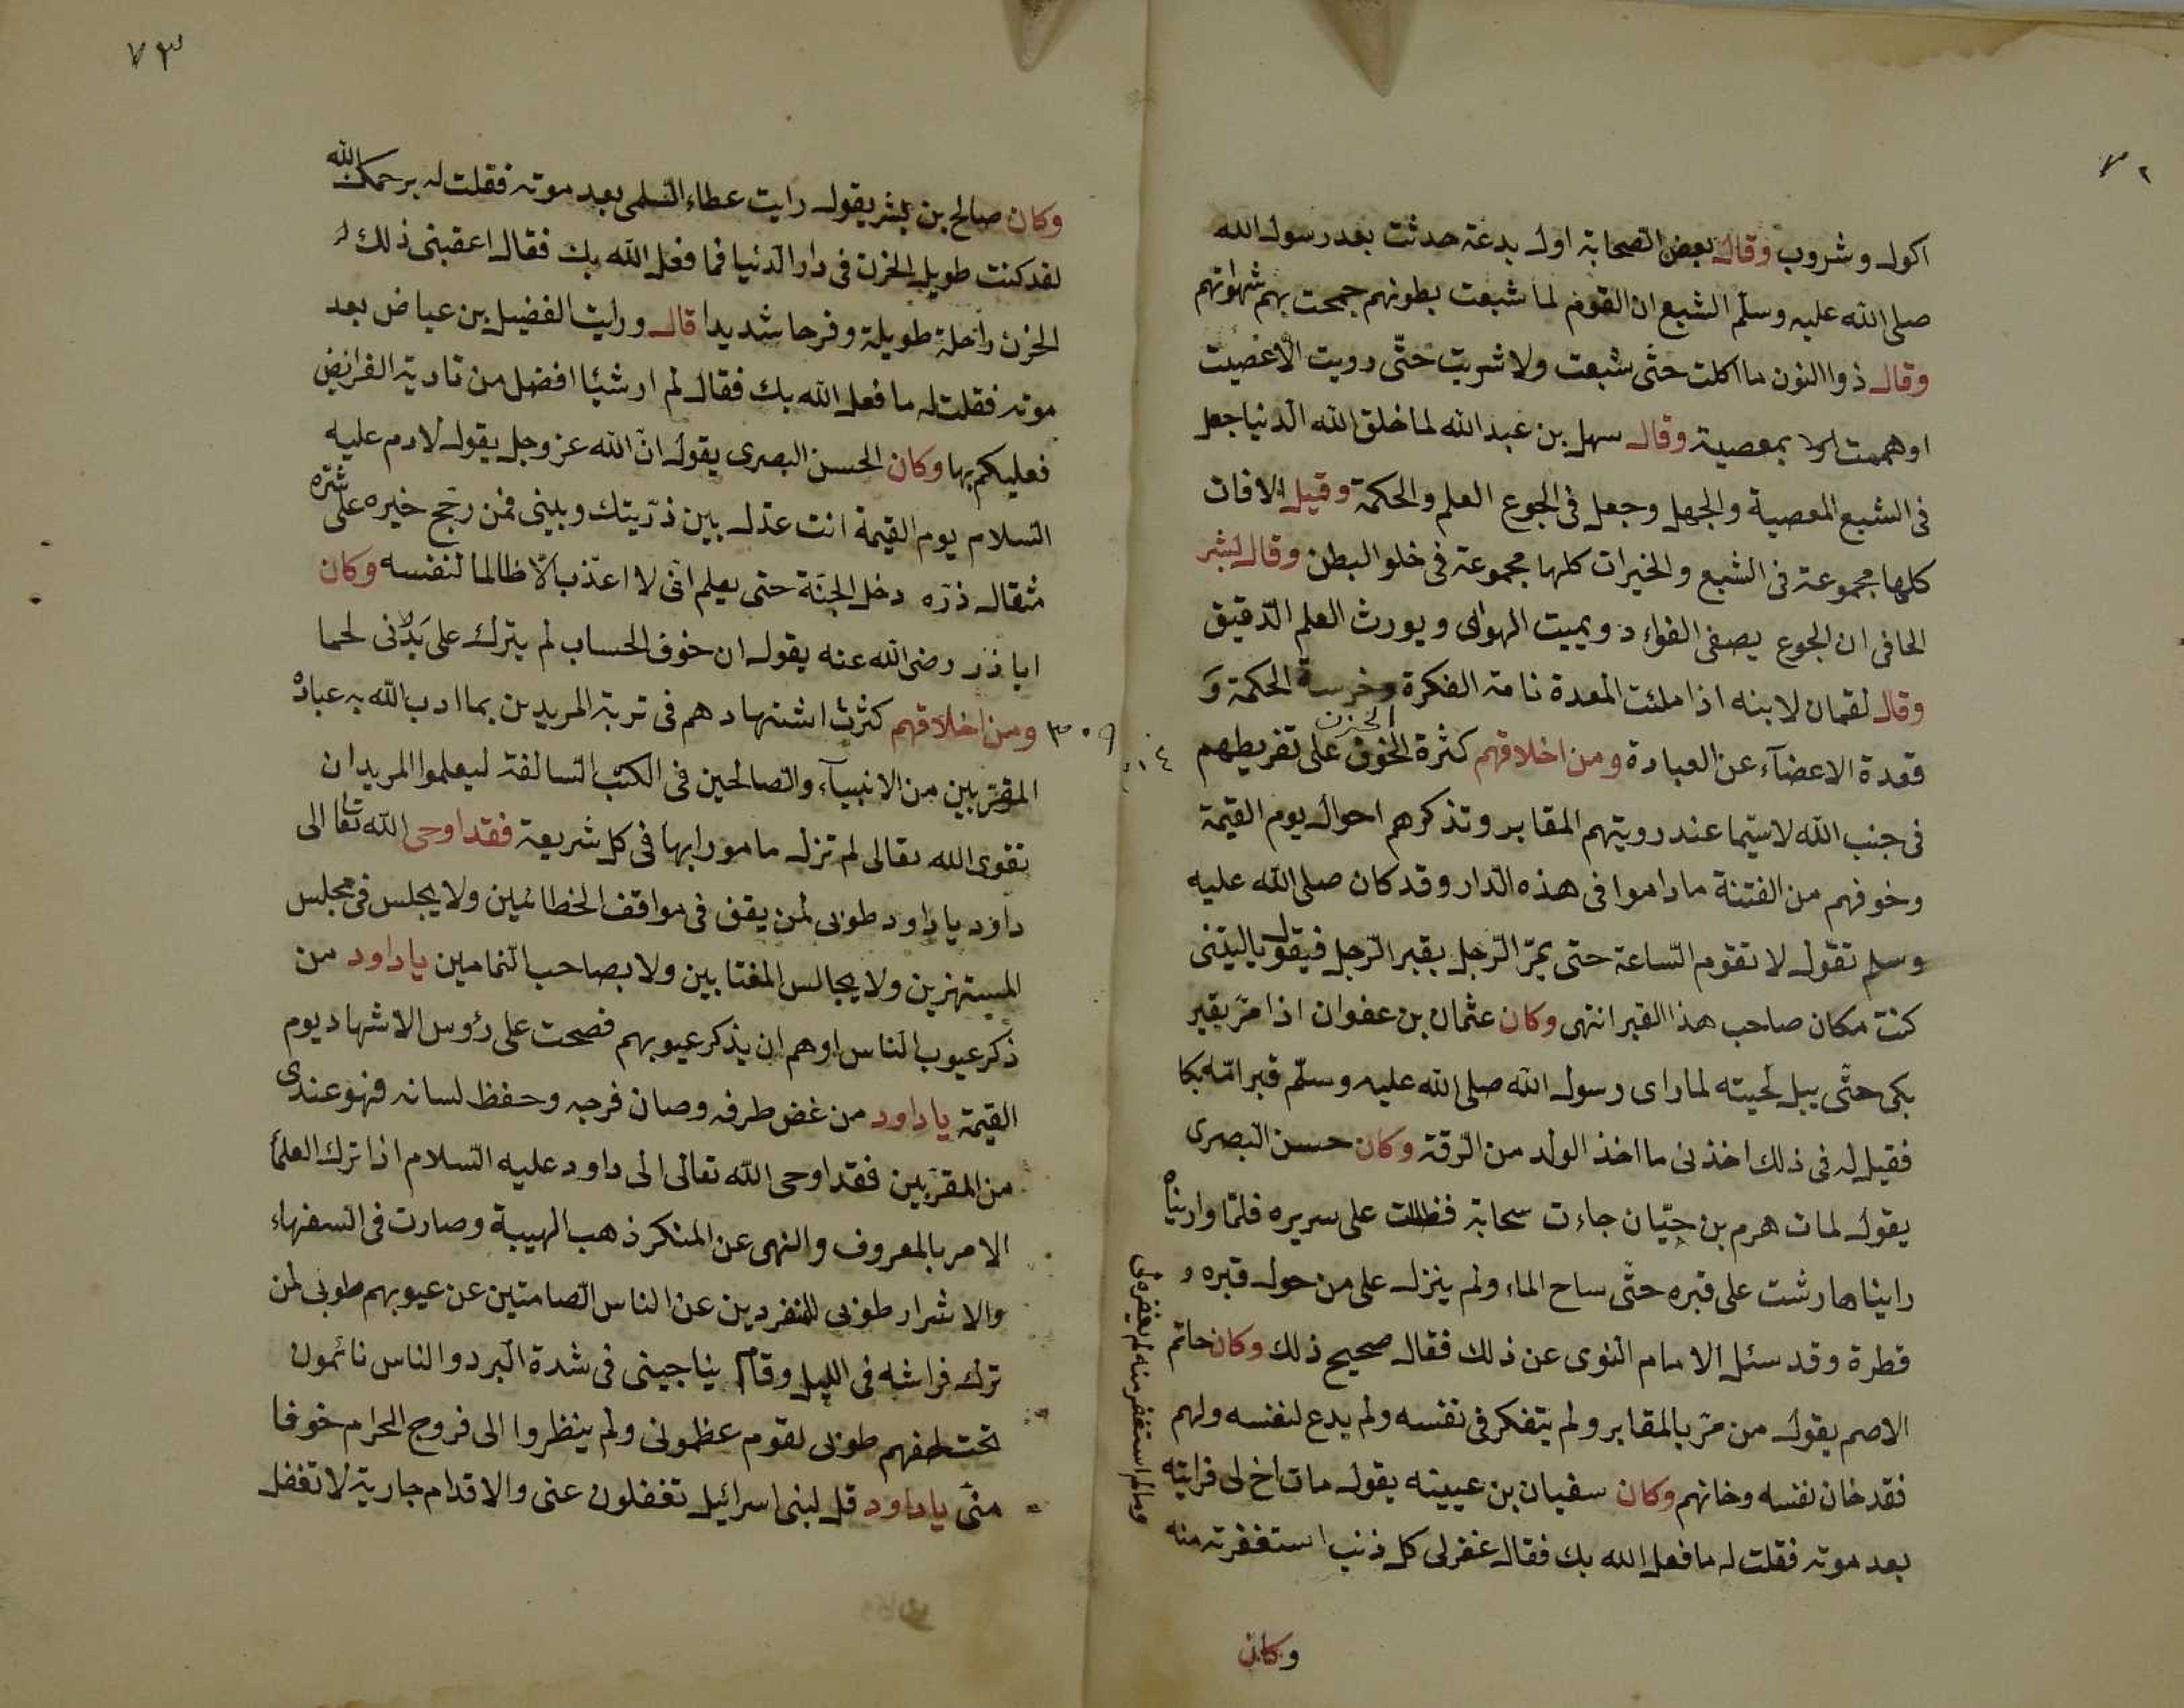 ٧٢
اكول وشروب وقال بعض الصحابة اول بدعة حدثت بعد رسول الله
صلى الله عليه وسلّم الشبع ان القوم لما شبعت بطونهم جمحت بهم شهواتهم
وقال ذوا النون ما اكلت حتّى شبعت ولا شربت حتّى رويت الّا عصيت
اوهممت بمعصية وقال سهل بن عبد الله لما خلق الله الدنيا جعل
فى الشبع المعصية والجهل وجعل فى الجوع العلم والحكمة وقيل الافات
كلها مجموعة فى الشبع والخيرات كلها مجموعة فى خلو البطن وقال بشر
الحافى ان الجوع يصفى الفواد ويميت الهوائ ويورث العلم الدّقيق
وقال لقمان لابنه اذا ملئت المعدة نامة الفكرة وخرسة الحكمة و
قعدة الاعضآء عن العبادة ومن اخلاقهم كثرة الخوف الحزن على تفريطهم
فى جنب الله لاسيّما عند رويتهم المقابر وتذكرهم احوال يوم القيمة
وخوفهم من الفتنة ما داموا فى هذه الدّار وقد كان صلى الله عليه
وسلم تقول لا تقوم السّاعة حتى يمرّ الرّجل بقبر الرّجل فيقول ياليتنى
كنت مكان صاحب هذا القبر انتهى وكان عثمان بن عفوان اذا مرّ بقبر
بكى حتّى يبل لحيته لما راى رسول الله صلى الله عليه وسلّم قبر امّه بكا
فقيل له فى ذلك اخذنى ما اخذ الولد من الرّقة وكان حسن البصرى
يقول لمات هرم بن حيّان جاءت سحابة فظللت على سريره فلمّا واريناه
رايناها رشت على قبره حتّى ساح الماء ولم ينزل على من حول قبره و
قطرة وقد سئل الامام النوى عن ذلك فقال صحيح ذلك وكان حاتم
الاصم يقول من مرّ بالمقابر ولم يتفكر فى نفسه ولم يدع لنفسه ولهم
فقد خان نفسه وخانهم وكان سفيان بن عيينه يقول مات اخ لى فرايته
بعد موته فقلت له ما فعل الله بك فقال غفر لى كل ذنب استغفرته منه
وما لم استغفر منه لم يغفر لى
وكان
٧٣
وكان صالح بن بشر يقول رايت عطاء السّلمى بعد موته فقلت له يرحمك الله
لقد كنت طويل الحزن فى دار الدّنيا فما فعل الله بك فقال اعقبنى ذلك
الحزن راحلة طويلة وفرحا شديدا قال ورايت الفضيل بن عياض بعد
موته فقلت له ما فعل الله بك فقال لم ار شيئا افضل من تادية الفرائض
فعليكم بها وكان الحسن البصرى يقول انّ الله عز وجل يقول لادم عليه
السّلام يوم القيمة انت عدل بين ذرّيتك وبينى فمن رجّح خيره على شرّه
مثقال ذرّه دخل الجنّة حتى يعلم انّى لا اعذّب الّا ظالما لنفسه وكان
اباذر رضى الله عنه يقول ان خوف الحساب لم يترك على بدنى لحما
٣٠٩ ومن اخلاقهم كثرت اشتهادهم فى تربة المريدين بما ادب الله به عباده
المقرّبين من الانبيآء والصّالحين فى الكتب السّالفة ليعلموا المريدان
تقوى الله تعالى لم تزل مامورا بها فى كل شريعة فقد اوحى الله تعا الى
داود يا داود طوبى لمن يقف فى مواقف الخطائين ولا يجلس فى مجلس
المستهزين ولا يجالس المغتابين ولا بصاحب النّمامين يا داود من
ذكر عيوب النّاس او هم ان يذكر عيوبهم فصحت على رؤس الاشهاد يوم
القيمة يا داود من غض طرفه وصان فرجه وحفظ لسانه فهو عندى
من المقرّبين فقد اوحى الله تعالى الى داود عليه السّلام اذا ترك العلمآ
الامر بالمعروف والنهى عن المنكر ذهب الهيبة وصارت فى السفهاء
والاشرار طوبى للنفردين عن الناس الصّامتين عن عيوبهم طوبى لمن
ترك فراشه فى الليل وقام يناجينى فى شدة البرد والناس نائمون
تحت لحفهم طوبى لقوم عظمونى ولم ينظروا الى فروج الحرام خوفا
منّى يا داود قل لبنى اسرائيل تغفلون عنى والاقدام جارية لا تغفل